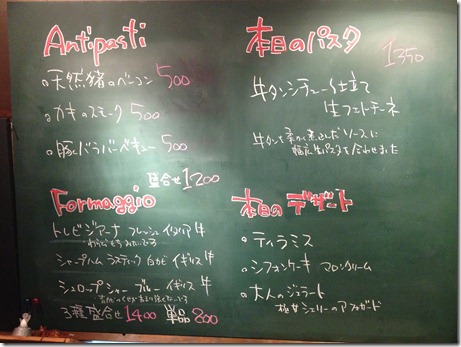 Antipasti
天然猪のベーコン 500
カキのスモーク 500
豚バラバーベキュー 500
盛合せ 1200
Formaggio
トレビジアーナ フレッシュ イタリア 牛
シャープハム ラスティック 白カビ イギリス 牛
シュロップシャー ブルー イギリス 牛
3種盛合せ 1400 単品 800
本日のパスタ
1350
牛タンシチュー仕立て
生フェトチーネ
牛タンを柔かく煮込んだソースに
幅広生パスタを合わせました
本日のデザート
ティラミス
シフォンケーキ マロンクリーム
大人のジェラート
極甘シェリーのアフォガード